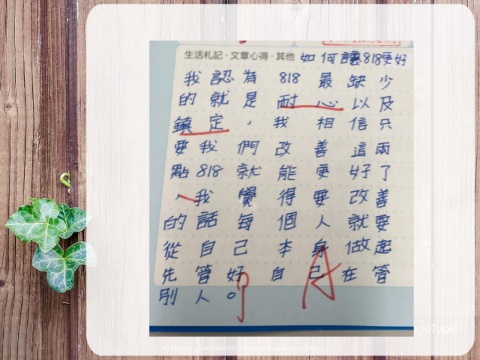 生活札記・文章心得・其他 如何讓818更好
我認為818最缺少
的就是耐心以及
鎮定，我相信只
要我們改善這兩
點818就能更好了
、我覺得要改善
的話每個人就要
從自己本身做起
先管好自己在管
別人。
A